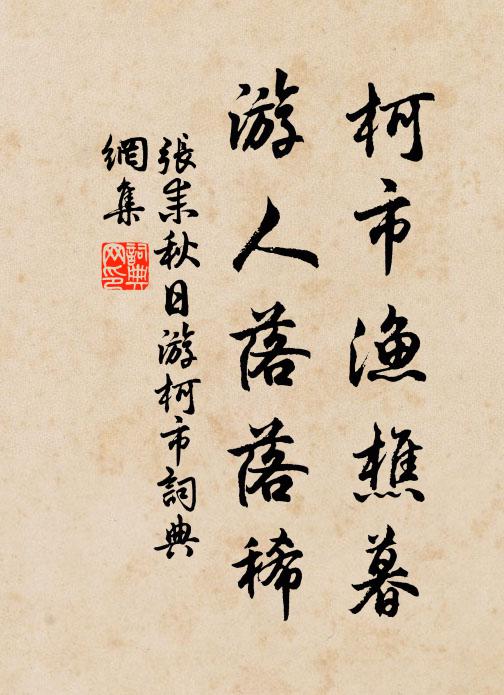 柯市漁樵暮
游人落落稀
張耒秋日游柯市詞典
網集
詞典
网印